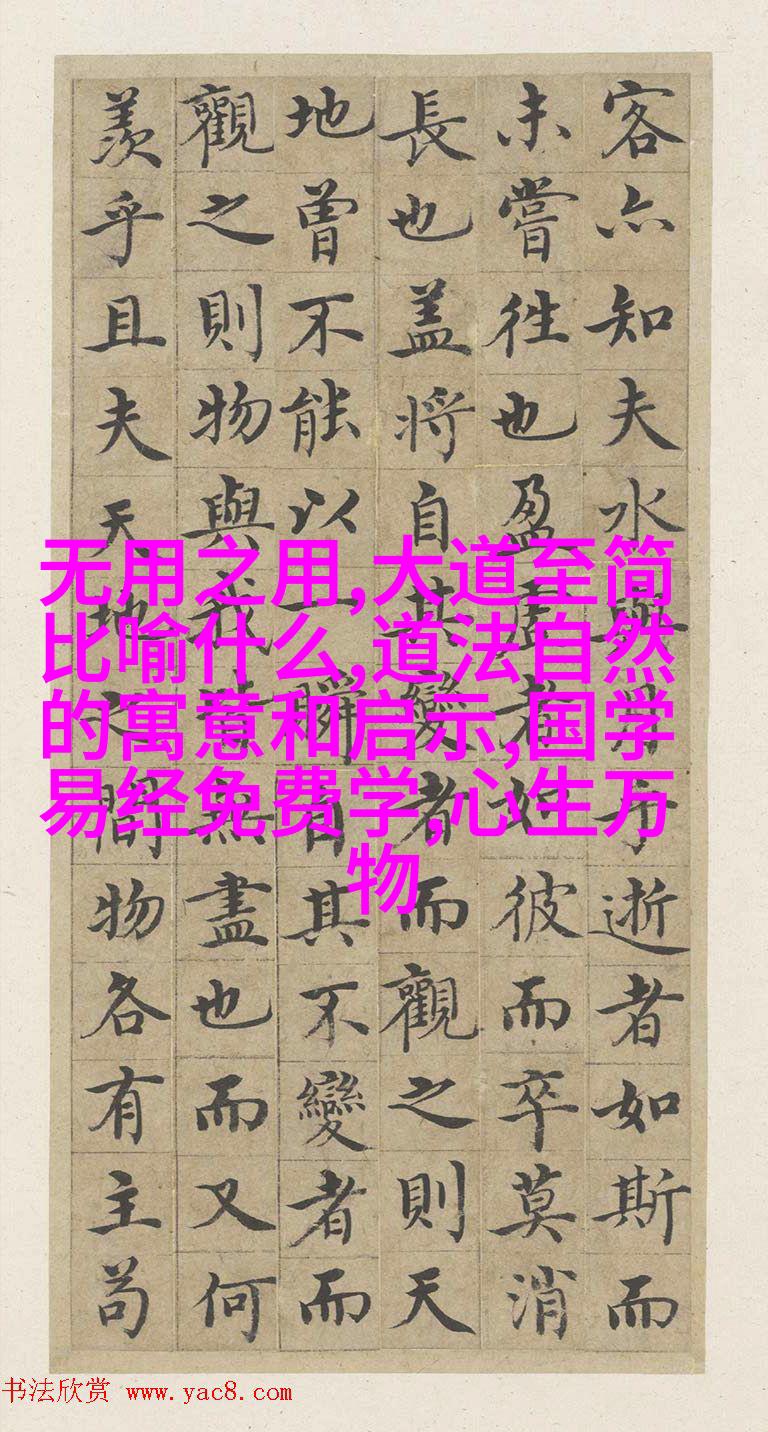 客亦知夫水與月乎逝者如斯而
未嘗往也盈虛者如彼而卒莫消
長也盖將自其變者而觀之則天
地曾不能以一瞬自其不變者而
觀之則物與我皆無盡也而又何
羨乎且夫天地之間物各有主苟
无用之用,大道至简
比喻什么,道法自然
的寓意和启示,国学
易经免费学,心生万
物
书法欣赏 www.yac8.com